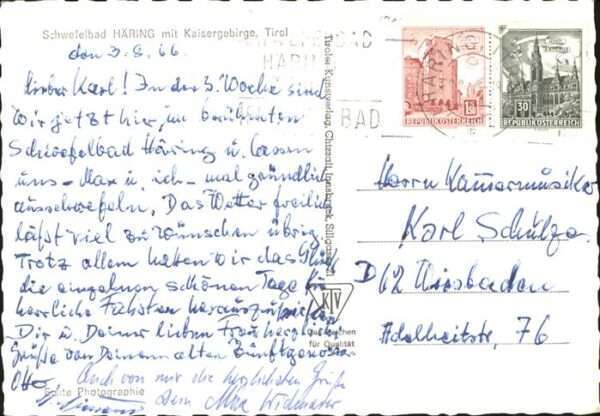 Schwefelbad HÄRING mit Kaisergebirge, Tirol
den 3.8.66.
Lieber Karl! In der 3. Woche sind
wir jetzt hier im berühmten
Schwefelbad Häring u. lassen
uns - Max u. ich - mal gründlich
ausschwefeln. Das Wetter freilich
läßt viel zu wünschen übrig.
Trotz allem hatten wir das Glück
die einzelnen schönen Tage für
herrliche Fahrten herauszufischen
Dir u. Deiner lieben Frau herzliche
Grüße von Deinem alten Zunftgenossen
Otto
Auch von mir die herzlichsten Grüße
Dein Max
Echte Photographie
Tiroler Kunstverlag, Chizzali, Innsbruck, Sillgasse
KTV
für Qualität
HÄRING
BAD
1.50
REPUBLIK ÖSTERREICH
30
REPUBLIK ÖSTERREICH
Herrn Kammermusiker
Karl Schulze
D 62 Wiesbaden
Adelheitstr. 76